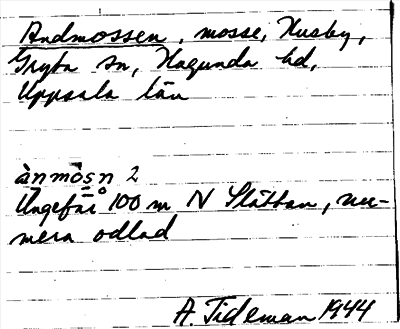 Andmossen, mosse, Husby,
Gryta sn, Hagunda hd,
Uppsala län
ànmòsn 2
Ungefär 100 m N Slättan, nu-
mera odlad
A. Tideman 1944